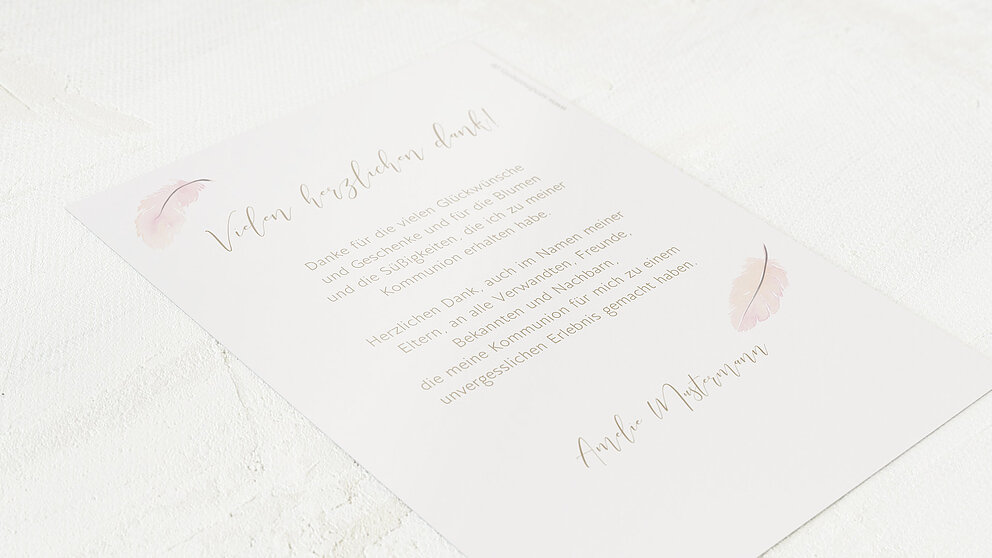 Vielen herzlichen dank!
Danke für die vielen Glückwünsche
und Geschenke und für die Blumen
und die Süßigkeiten, die ich zu meiner
Kommunion erhalten habe.
Herzlichen Dank, auch im Namen meiner
Eltern, an alle Verwandten, Freunde,
Bekannten und Nachbarn,
die meine Kommunion für mich zu einem
unvergesslichen Erlebnis gemacht haben.
Amelie Mustermann